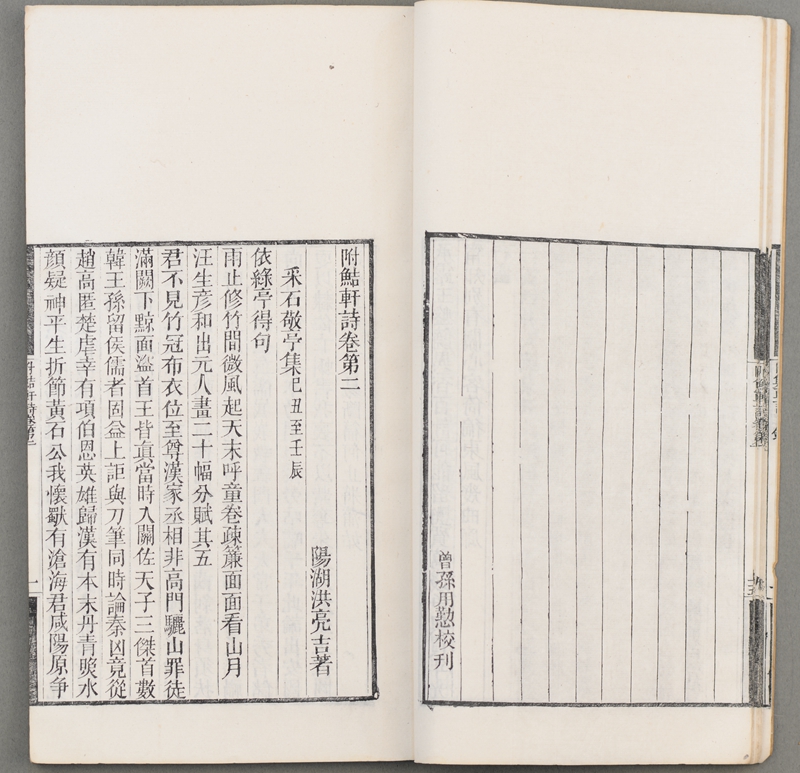 曾孫用懃校刊
附鮚軒詩卷第二
陽湖洪亮吉著
采石敬亭集己丑至壬辰
依綠亭得句
雨止修竹間微風起天末呼童卷疎簾面面看山月
汪生彥和出元人畫二十幅分賦其五
君不見竹冠布衣位至尊漢家丞相非高門驪山罪徒
滿闕下黥面盜首王皆真當時入關佐天子三傑首數
韓王孫留侯儒者固益上詎與刀筆同時論秦凶竟從
趙高匿楚虐幸有項伯恩英雄歸漢有本末丹青燄水
顔疑神平生折節黃石公我懷歇有滄海君咸陽原爭
附鮚軒詩卷第二
一